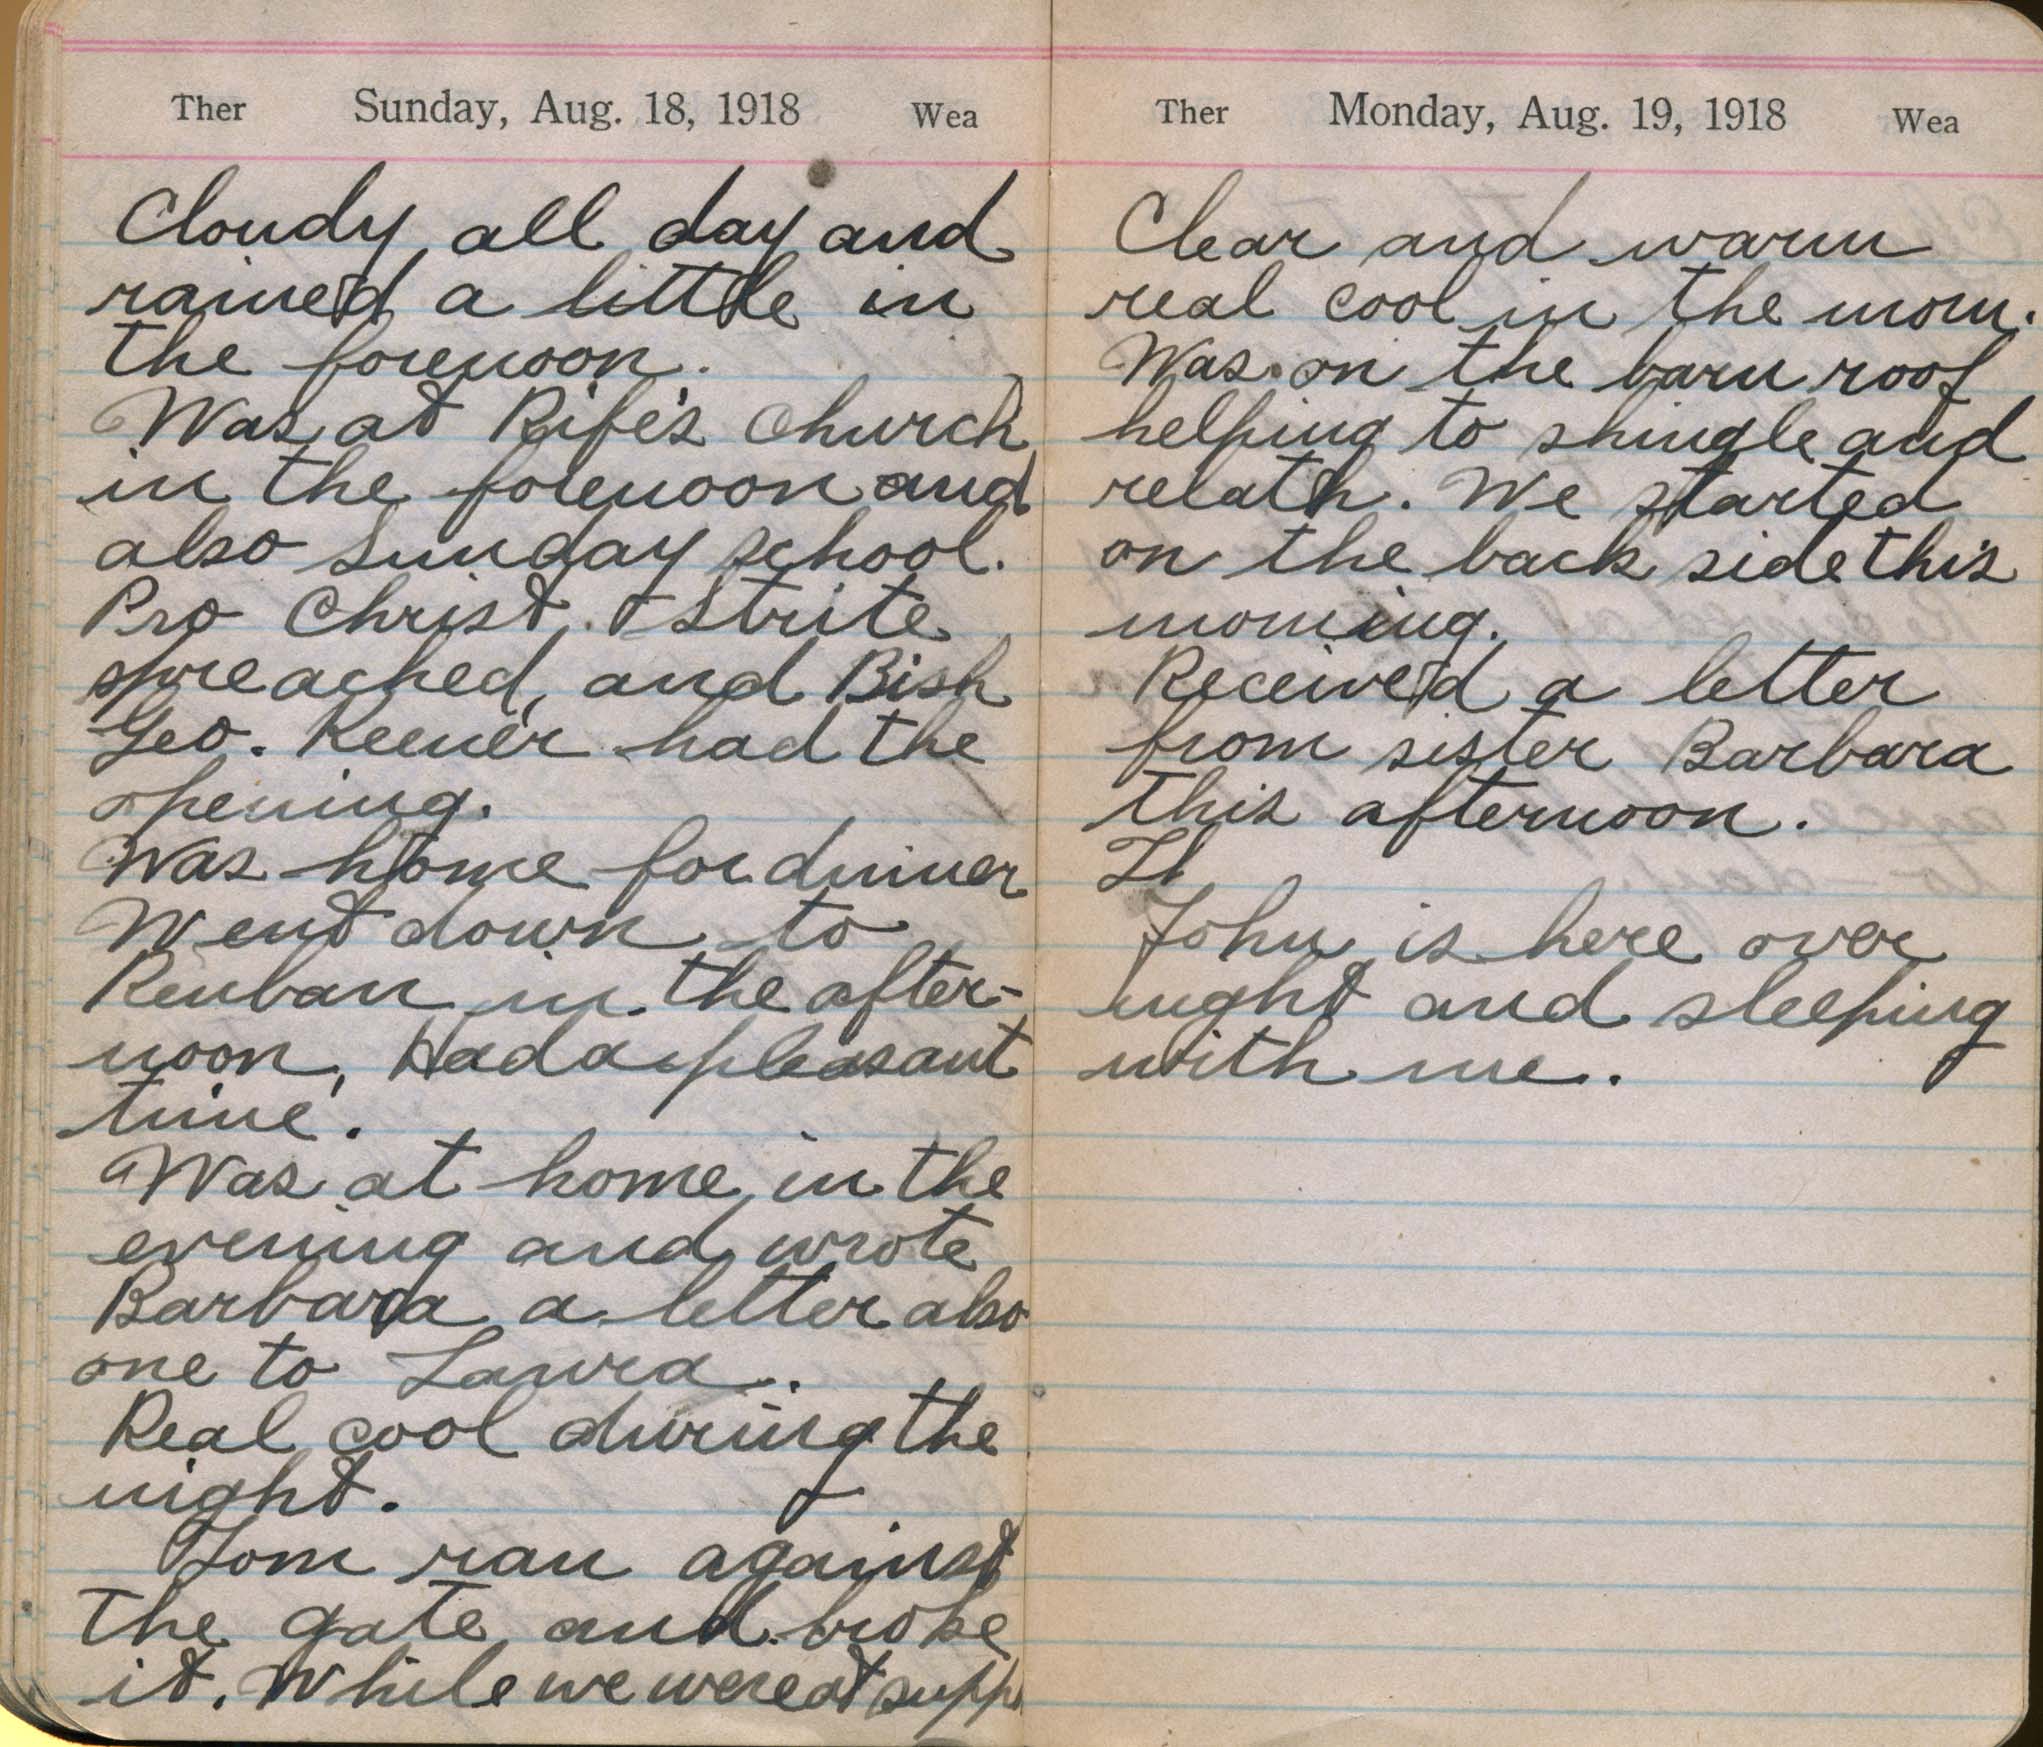 Ther Sunday, Aug. 18, 1918 Wea
Cloudy all day and
rained a little in
the forenoon.
Was at Rife's Church
in the forenoon and
also Sunday school.
Pro Christ. Strite
preached, and Bish
Geo. Keener had the
opening.
Was home for dinner
Went down to
Reuban in the after-
noon, Had a pleasant
time.
Was at home in the
evening and wrote
Barbara a letter also
one to Laura.
Real cool during the
night.
Tom ran against
the gate and broke
it. While we were at supp
Ther Monday, Aug. 19, 1918 Wea
Clear and warm
real cool in the morn.
Was on the barn roof
helping to shingle and
relath. We started
on the back side this
morning.
Received a letter
from sister Barbara
this afternoon.
John is here over
night and sleeping
with me.